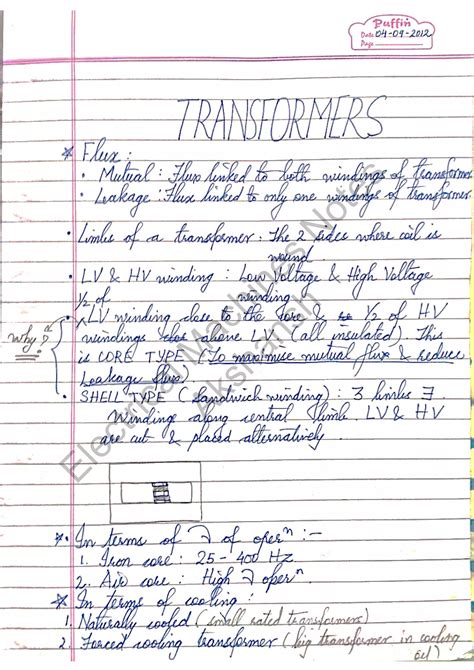 Puffin
Date 04-09-2012
Page
TRANSFORMERS
* Flux :
• Mutual : Flux linked to both windings of transformer
• Leakage : Flux linked to only one windings of transformer.
• Limbs of a transformer : The 2 sides where coil is
wound.
• LV & HV winding : Low Voltage & High Voltage
winding.
Why?
• 1/2 of LV winding close to the core & 1/2 of HV
windings above LV (all insulated). This
is CORE TYPE (To maximise mutual flux & reduce
Leakage flux).
• SHELL TYPE (Sandwich winding) : 3 limbs ∃.
Winding along central limb LV & HV
are cut & placed alternatively.
*. In terms of ν of operⁿ :-
1. Iron core : 25 - 400 Hz
2. Air core : High ν operⁿ.
* In terms of cooling :
1. Naturally cooled (small rated transformers)
2. Forced cooling transformer (big transformer in cooling
oil)
Electrical Machines Notes
Akshansh